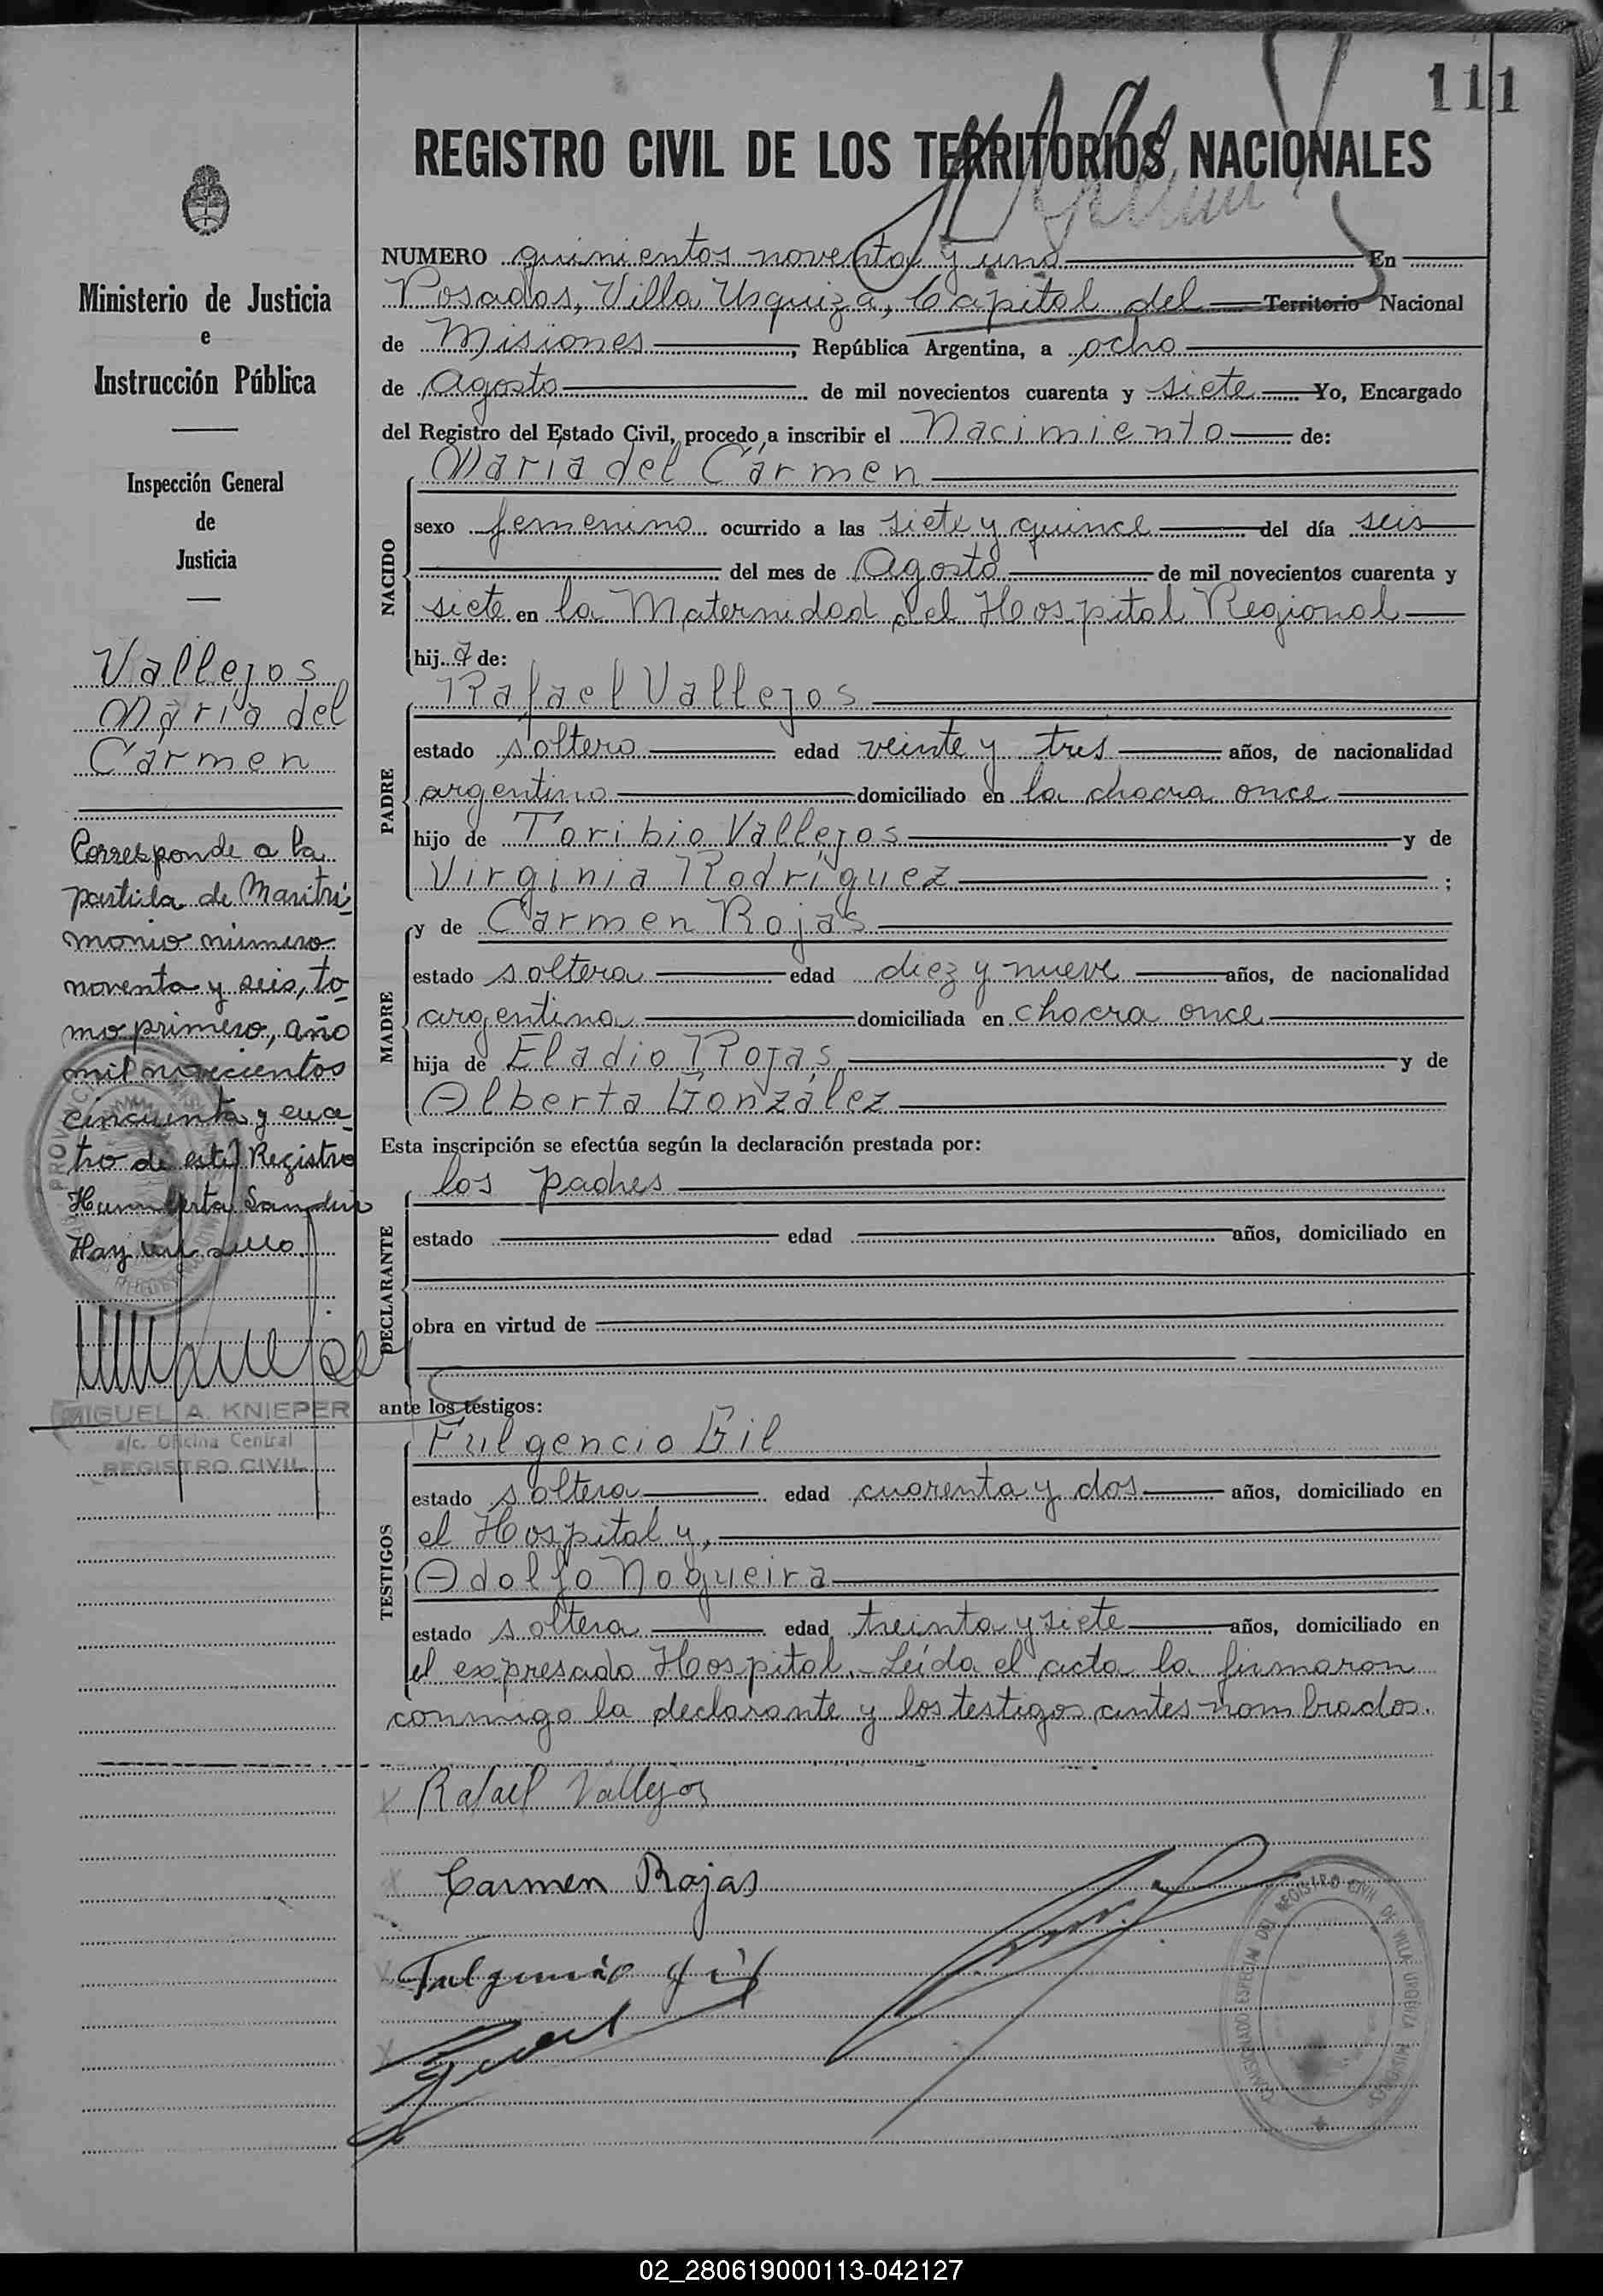 111
REGISTRO CIVIL DE LOS TERRITORIOS NACIONALES
NUMERO quinientos noventa y uno En
Posadas, Villa Urquiza, Capital del Territorio Nacional
de Misiones, República Argentina, a ocho
de Agosto de mil novecientos cuarenta y siete Yo, Encargado
del Registro del Estado Civil, procedo a inscribir el Nacimiento de:
María del Cármen
NACIDO
sexo femenino ocurrido a las siete y quince del día seis
del mes de Agosto de mil novecientos cuarenta y
siete en la Maternidad del Hospital Regional
hija de:
Rafael Vallejos
PADRE
estado soltero edad veinte y tres años, de nacionalidad
argentino domiciliado en la chacra once
hijo de Toribio Vallejos y de
Virginia Rodríguez;
y de Carmen Rojas
MADRE
estado soltera edad diez y nueve años, de nacionalidad
argentina domiciliada en chacra once
hija de Eladio Rojas y de
Alberta González
Esta inscripción se efectúa según la declaración prestada por:
los padres
DECLARANTE
estado edad años, domiciliado en
obra en virtud de
ante los testigos:
Fulgencio Gil
TESTIGOS
estado soltera edad cuarenta y dos años, domiciliado en
el Hospital y,
Adolfo Nogueira
estado soltera edad treinta y siete años, domiciliado en
el expresado Hospital. Leída el acta la firmaron
conmigo la declarante y los testigos antes nombrados.
Rafael Vallejos
Carmen Rojas
Fulgencio Gil
COMISIONADO ESPECIAL DEL REGISTRO CIVIL DE VILLA URQUIZA MISIONES
Ministerio de Justicia
e
Instrucción Pública
Inspección General
de
Justicia
Vallejos
María del
Cármen
Corresponde a la
partida de Matri-
monio número
noventa y seis, to-
mo primero, año
mil novecientos
cincuenta y cua-
tro de este Registro
Humberta
Hay un sello.
MIGUEL A. KNIEPER
a/c. Oficina Central
REGISTRO CIVIL
02_280619000113-042127